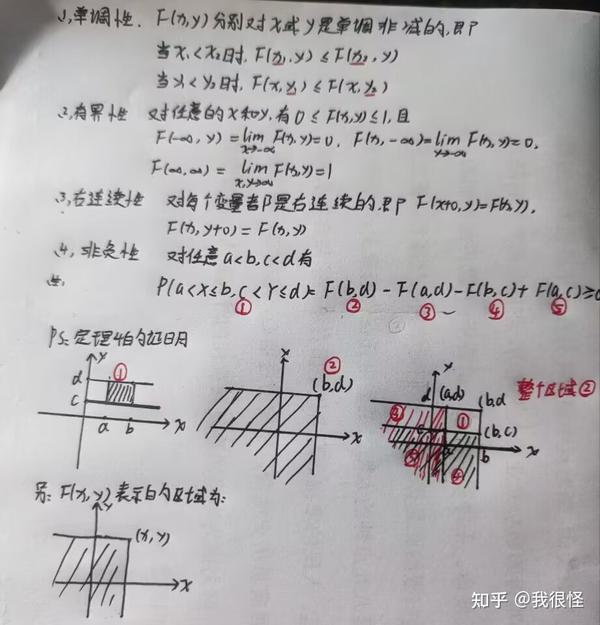 1,单调性. F(x,y)分别对x或y是单调非减的,即
当x₁<x₂时, F(x₁,y)≤F(x₂,y)
当y₁<y₂时, F(x,y₁)≤F(x,y₂)
2,有界性 对任意的x和y,有0≤F(x,y)≤1,且
F(-∞,y)=lim F(x,y)=0, F(x,-∞)=lim F(x,y)=0,
x→-∞ y→-∞
F(∞,∞)=lim F(x,y)=1
x,y→∞
3,右连续性 对每个变量都是右连续的,即F(x+0,y)=F(x,y),
F(x,y+0)=F(x,y)
4,非负性 对任意a<b,c<d有
P(a<X≤b,c<Y≤d)=F(b,d)-F(a,d)-F(b,c)+F(a,c)≥0
① ② ③ ④ ⑤
PS:定理4的证明
y
d ①
c
a b x
②
(b,d)
x
d (a,d) (b,d
整个区域②
③ ①
(b,c)
⑤ ④ b x
另:F(x,y)表示的区域为:
y
(x,y)
x
知乎 @我很怪